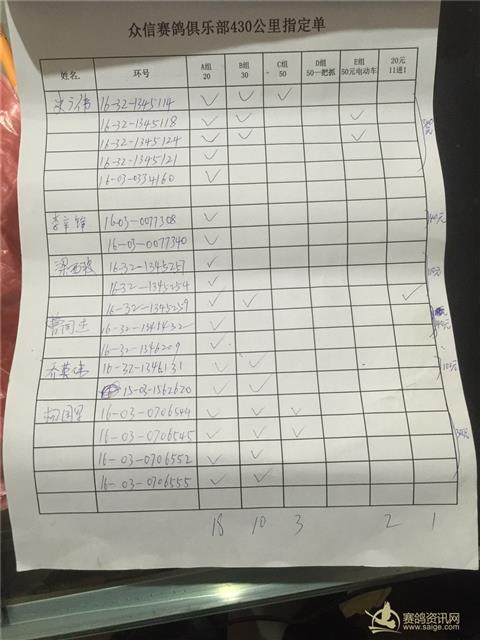 众信赛鸽俱乐部430公里指定单
姓名 环号 A组 20 B组 30 C组 50 D组 50一把抓 E组 50元电动车 20元 11进1
16-32-1345114 ✓ ✓ ✓
16-32-1345118 ✓ ✓ ✓
16-32-1345124 ✓ ✓ ✓
16-32-1345121 ✓
16-03-0334160 ✓
16-03-0077308 ✓
16-03-0077340 ✓
16-32-1345257 ✓
16-32-1345254 ✓
16-32-1345259 ✓ ✓ ✓
✓
16-32-1346209 ✓
16-32-1346131 ✓ ✓
15-03-1562620 ✓ ✓
16-03-0706544 ✓ ✓ ✓
16-03-0706545 ✓ ✓ ✓
16-03-0706552 ✓ ✓
16-03-0706555 ✓ ✓
18 10 3 2 1
赛鸽资讯网
www.saige.com